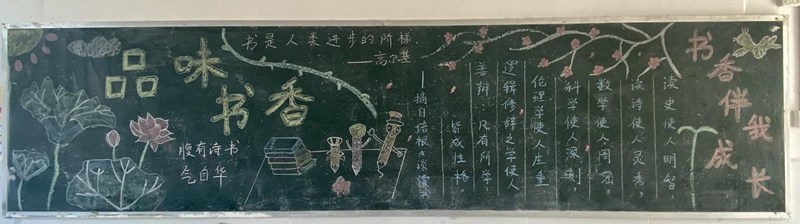 品味书香
书是人类进步的阶梯
——高尔基
腹有诗书
气自华
书香伴我成长
读史使人明智，
读诗使人灵秀，
数学使人周密，
科学使人深刻，
伦理学使人庄重
逻辑修辞之学使人
善辩：凡有所学
皆成性格
——摘自培根《谈读书》